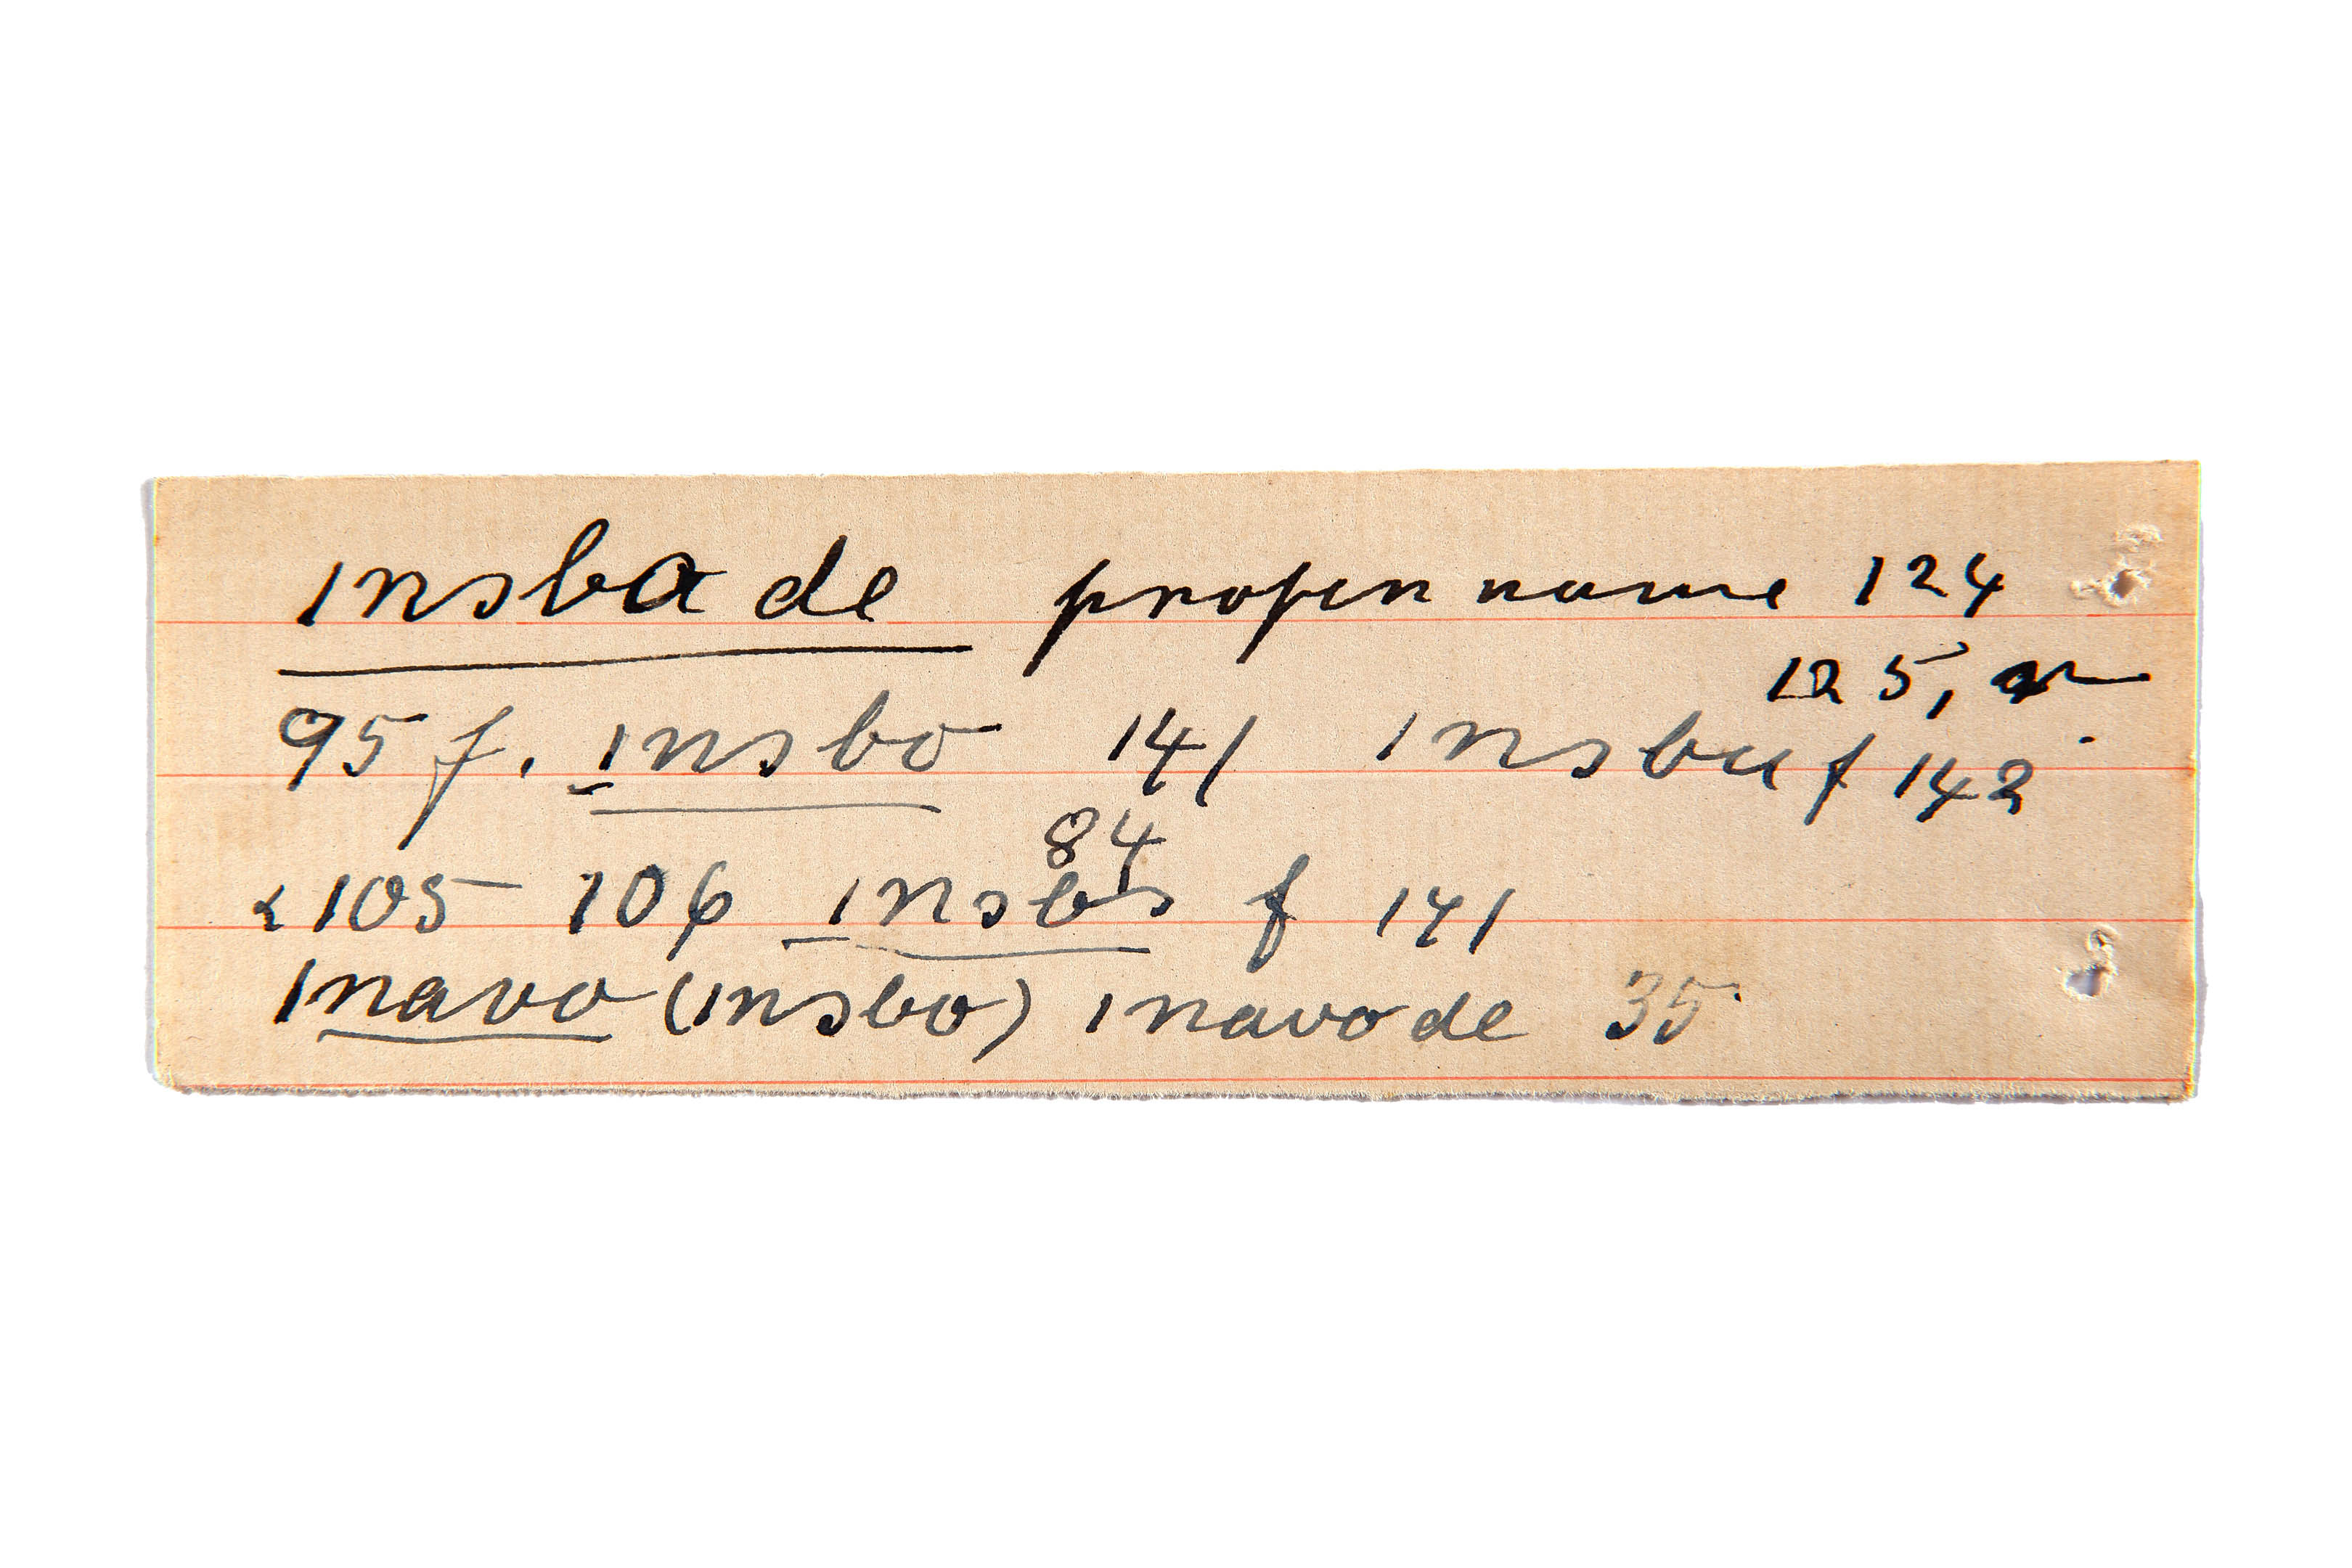 insbade proper name 124
125,
95 f. insbo 141 insbuf 142
84
<105 106 insbs f 141
inavo (insbo) inavode 35